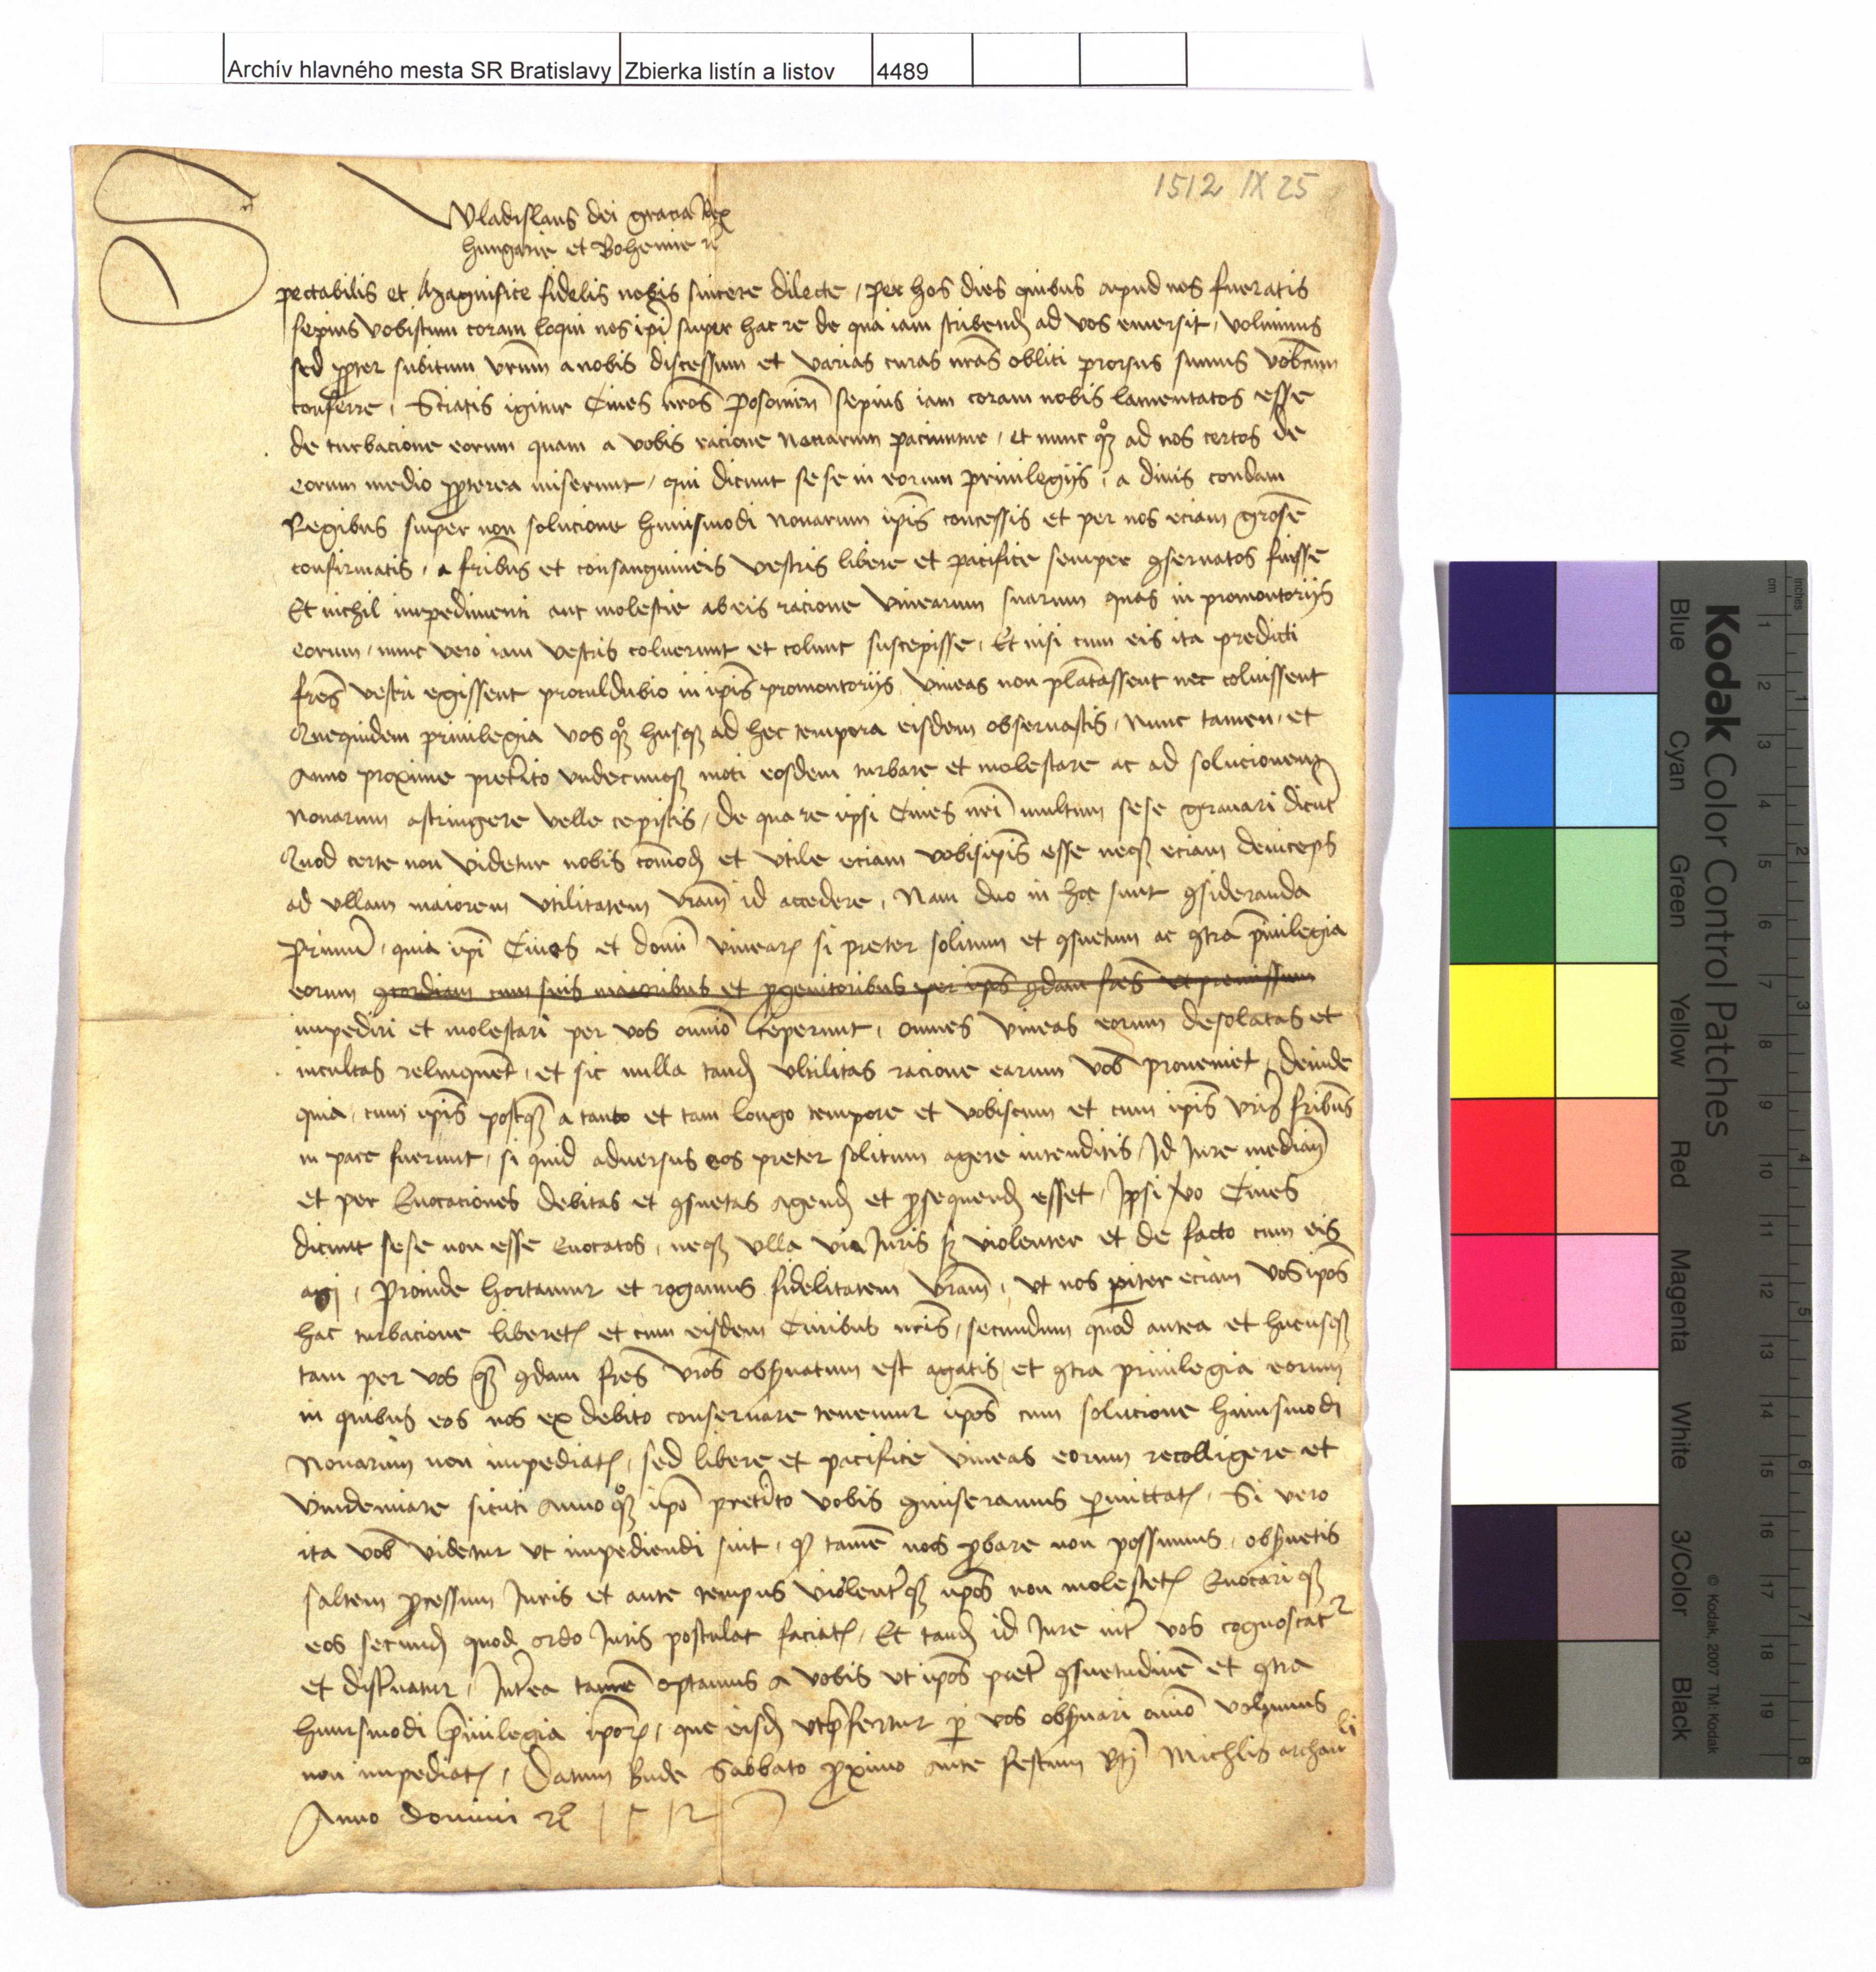 Archív hlavného mesta SR Bratislavy Zbierka listín a listov 4489
1512 IX 25
Wladislaus dei gracia Rex
hungarie et Bohemie rc
Spectabilis et Magnifice fidelis nobis sincere dilecte, per hos dies quibus apud nos fueratis
sepius vobiscum coram loqui nos ipi super hac re de qua iam scribend ad vos emersit, voluimus
sed ppter subitum vrum a nobis discessum et varias curas nras obliti prorsus sumus vobcum
conferre, Sciatis igitur Ciues nros Posonien sepius iam coram nobis lamentatos esse
de turbacione eorum quam a vobis racione nonarum paciuntur, et nunc qoqz ad nos certos de
eorum medio ppterea miserunt, qui dicunt sese in eorum priuilegijs, a diuis condam
Regibus super non solucione huiusmodi nonarum ipis concessis et per nos eciam grose
confirmatis, a fribus et consanguineis vestris libere et pacifice semper gseruatos fuisse
Et nichil impedimenti aut molestie ab eis racione vinearum suarum quas in promontorijs
eorum, nunc vero iam vestris coluerunt et colunt suscepisse, Et nisi cum eis ita predicti
fres vestri egissent proculdubio in ipis promontorijs vineas non platassent nec coluissent
Quequidem priuilegia vos qoqz husqz ad hec tempora eisdem obseruastis, Nunc tamen, et
Anno proxime pretito vndecunqz moti eosdem turbare et molestare ac ad solucionem
nonarum astringere velle cepistis, de qua re ipsi Ciues nri multum sese grauari dicut
Quod certe non videtur nobis comod et vtile eciam vobisipis esse neqz eciam deinceps
ad vllam maiorem vtilitatem vram id accedere, Nam duo in hoc sunt gsideranda
Primu, quia ipi Ciues et domi vinear si preter solitum et gsuetum ac gtra priuilegia
eorum gcordiam cum suis maioribus et pgenitoribus per ipos gdam fres vt premissum
impediri et molestari per vos omio ceperunt, omnes vineas eorum desolatas et
incultas relinquet, et sic nulla tand vltilitas racione earum vob proueniet, deinde
quia, cum ipis postqz a tanto et tam longo tempore et vobiscum et cum ipis vris fribus
in pace fuerunt, si quid aduersus eos preter solitum agere intenditis, Id Iure median
et per Euocaciones debitas et gsuetas agend et psequend esset, Ipsi vo Ciues
dicunt sese non esse Euocatos, neqz vlla via Iuris sz violenter et de facto cum eis
agi, Proinde hortamur et rogamus fidelitatem vram, vt nos piter eciam vosipos
hac turbacione liberet et cum eisdem Ciuibus nris, secundum quod antea et hucusqz
tam per vos qz gdam fres vros obseruatum est agatis, et gtra priuilegia eorum
in quibus eos nos ex debito conseruare tenemur ipos cum solucione huiusmodi
Nonarum non impediat, sed libere et pacifice vineas eorum recolligere et
vindemiare sicuti Anno qoqz ipo pretito vobis gmiseramus pmittat, Si vero
ita vob videtur vt impediendi sint, q tame nos pbare non possumus, obseruetis
saltem pcessum Iuris et ante tempus violentqz ipos non molestet Euocariqz
eos secund quod ordo Iuris postulat faciat, Et tand id Iure int vos cognoscat
et discnatur, Intea tame optamus a vobis vt ipos pret gsuetudine et gtra
huiusmodi priuilegia ipor, que eisd vtpfertur p vos obseruari omio volumus
non impediat, Datum Bude Sabbato pximo ante festum bti Michlis archanli
Anno domini rc 1512
Kodak Color Control Patches
Blue Cyan Green Yellow Red Magenta White 3/Color Black
© Kodak, 2007 TM: Kodak
inches 1 2 3 4 5 6 7 8
cm 1 2 3 4 5 6 7 8 9 10 11 12 13 14 15 16 17 18 19